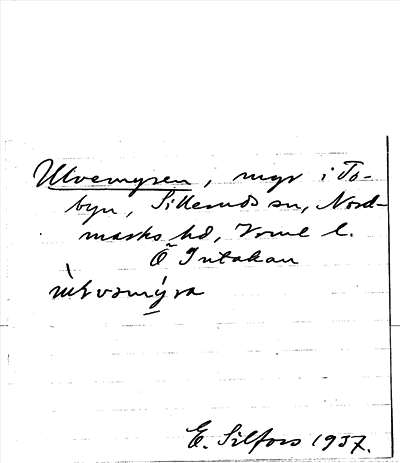 Ulvemyren, myr i To-
byn, Silleruds sn, Nord-
marks hd, Vrml l.
Ö Intakan

E. Silfors 1937.